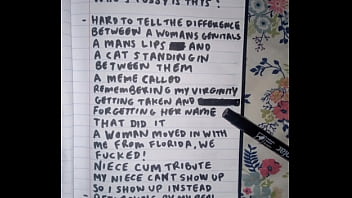 - HARD TO TELL THE DIFFERENCE
BETWEEN A WOMANS GENITALS
A MANS LIPS AND
A CAT STANDING IN
BETWEEN THEM
A MEME CALLED
REMEMBERING MY VIRGINITY
GETTING TAKEN AND
FORGETTING HER NAME
THAT DID IT
A WOMAN MOVED IN WITH
ME FROM FLORIDA, WE
FUCKED!
NIECE CUM TRIBUTE
MY NIECE CANT SHOW UP
SO I SHOW UP INSTEAD
BY MY REAL